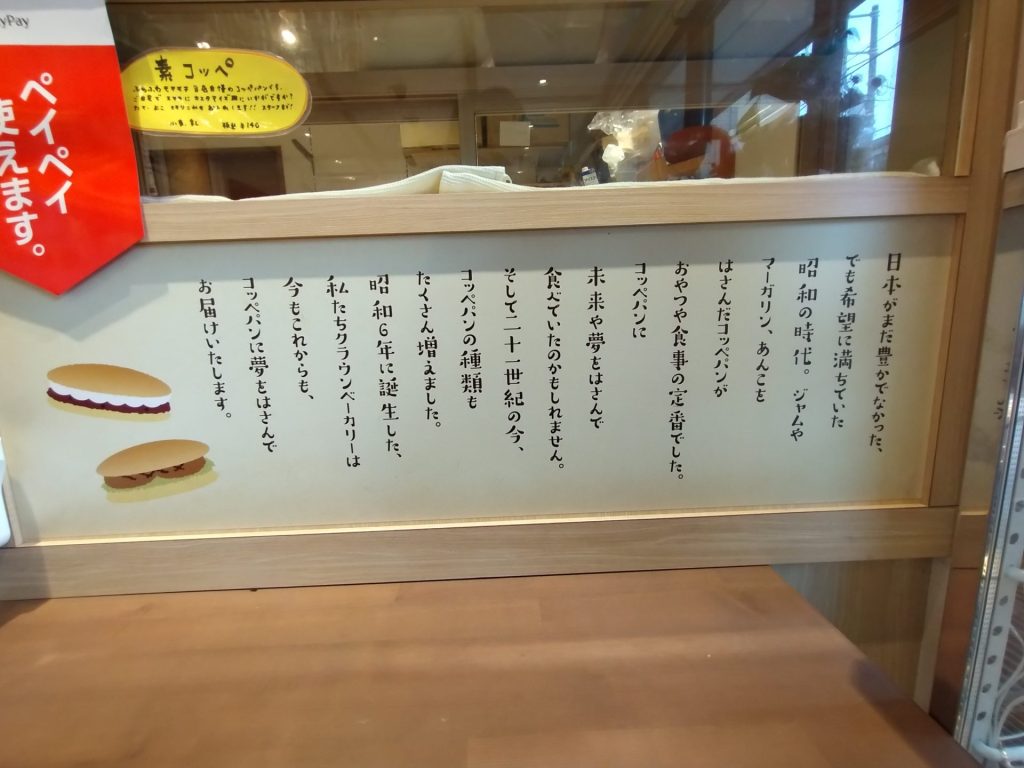 yPay
ペイペイ
使えます。
素コッペ
日本がまだ豊かでなかった、
でも希望に満ちていた
昭和の時代。ジャムや
マーガリン、あんこを
はさんだコッペパンが
おやつや食事の定番でした。
コッペパンに
未来や夢をはさんで
食べていたのかもしれません。
そして二十一世紀の今、
コッペパンの種類も
たくさん増えました。
昭和6年に誕生した、
私たちクラウンベーカリーは
今もこれからも、
コッペパンに夢をはさんで
お届けいたします。